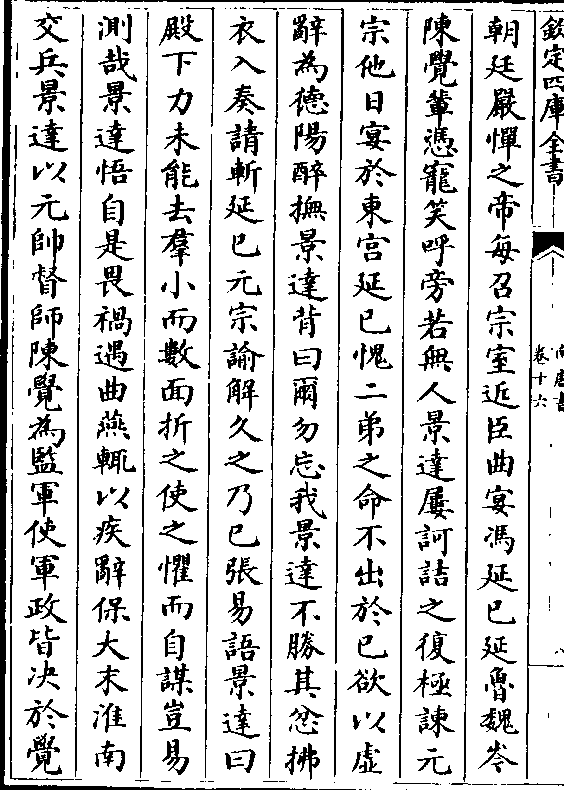 欽定四庫全書
南唐書
卷十六
八
朝廷嚴憚之帝每召宗室近臣曲宴馮延巳延魯魏岑
陳覺輩憑寵笑呼旁若無人景達屢訶詰之復極諫元
宗他日宴於東宮延巳愧二弟之命不出於己欲以虛
辭為德陽醉撫景達背曰爾勿忘我景達不勝其忿拂
衣入奏請斬延巳元宗諭解久之乃已張易語景達曰
殿下力未能去羣小而數面折之使之懼而自謀豈易
測哉景達悟自是畏禍遇曲燕輒以疾辭保大末淮南
交兵景達以元帥督師陳覺為監軍使軍政皆決於覺